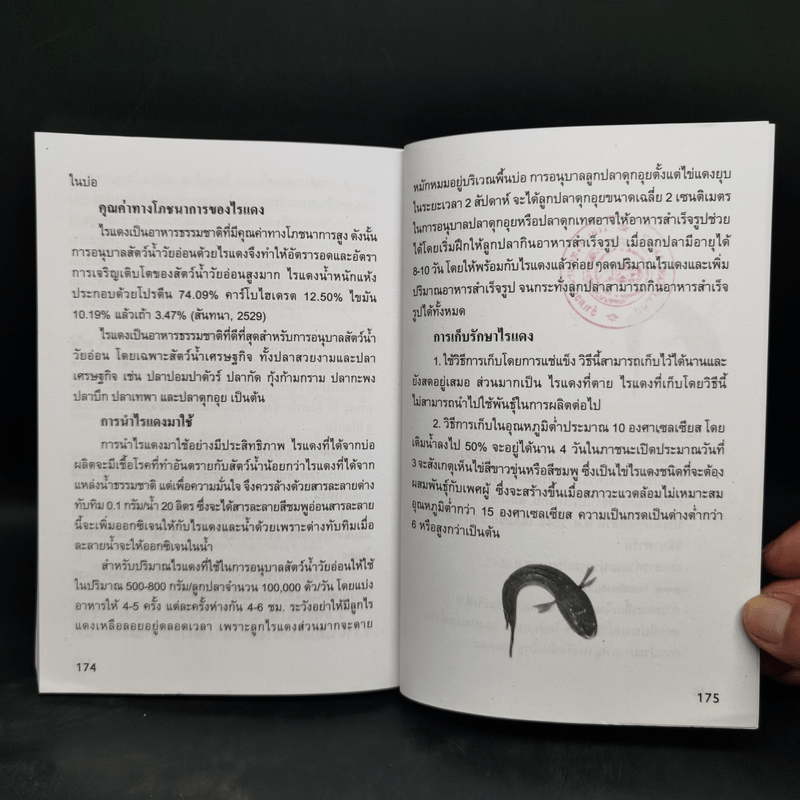 ในบ่อ
คุณค่าทางโภชนาการของไรแดง
ไรแดงเป็นอาหารธรรมชาติที่มีคุณค่าทางโภชนาการสูง ดังนั้น
การอนุบาลสัตว์น้ำวัยอ่อนด้วยไรแดงจึงทำให้อัตรารอดและอัตรา
การเจริญเติบโตของสัตว์น้ำวัยอ่อนสูงมาก ไรแดงน้ำหนักแห้ง
ประกอบด้วยโปรตีน 74.09% คาร์โบไฮเดรต 12.50% ไขมัน
10.19% แล้วเถ้า 3.47% (สันทนา, 2529)
ไรแดงเป็นอาหารธรรมชาติที่ดีที่สุดสำหรับการอนุบาลสัตว์น้ำ
วัยอ่อน โดยเฉพาะสัตว์น้ำเศรษฐกิจ ทั้งปลาสวยงามและปลา
เศรษฐกิจ เช่น ปลาปอมปาดัวร์ ปลากัด กุ้งก้ามกราม ปลากะพง
ปลาบึก ปลาเทพา และปลาดุกอุย เป็นต้น
การนำไรแดงมาใช้
การนำไรแดงมาใช้อย่างมีประสิทธิภาพ ไรแดงที่ได้จากบ่อ
ผลิตจะมีเชื้อโรคที่ทำอันตรายกับสัตว์น้ำน้อยกว่าไรแดงที่ได้จาก
แหล่งน้ำธรรมชาติ แต่เพื่อความมั่นใจ จึงควรล้างด้วยสารละลายด่าง
ทับทิม 0.1 กรัม/น้ำ 20 ลิตร ซึ่งจะได้สารละลายสีชมพูอ่อนสารละลาย
นี้จะเพิ่มออกซิเจนให้กับไรแดงและน้ำด้วยเพราะด่างทับทิมเมื่อ
ละลายน้ำจะให้ออกซิเจนในน้ำ
สำหรับปริมาณไรแดงที่ใช้ในการอนุบาลสัตว์น้ำวัยอ่อนให้ใช้
ในปริมาณ 500-800 กรัม/ลูกปลาจำนวน 100,000 ตัว/วัน โดยแบ่ง
อาหารให้ 4-5 ครั้ง แต่ละครั้งห่างกัน 4-6 ชม. ระวังอย่าให้มีลูกไร
แดงเหลือลอยอยู่ตลอดเวลา เพราะลูกไรแดงส่วนมากจะตาย
174
หมักหมมอยู่บริเวณพื้นบ่อ การอนุบาลลูกปลาดุกอุยตั้งแต่ไข่แดงยุบ
ในระยะเวลา 2 สัปดาห์ จะได้ลูกปลาดุกอุยขนาดเฉลี่ย 2 เซนติเมตร
ในการอนุบาลปลาดุกอุยหรือปลาดุกเทศอาจให้อาหารสำเร็จรูปช่วย
ได้โดยเริ่มฝึกให้ลูกปลากินอาหารสำเร็จรูป เมื่อลูกปลามีอายุได้
8-10 วัน โดยให้พร้อมกับไรแดงแล้วค่อยๆลดปริมาณไรแดงและเพิ่ม
ปริมาณอาหารสำเร็จรูป จนกระทั่งลูกปลาสามารถกินอาหารสำเร็จ
รูปได้ทั้งหมด
การเก็บรักษาไรแดง
1. ใช้วิธีการเก็บโดยการแช่แข็ง วิธีนี้สามารถเก็บไว้ได้นานและ
ยังสดอยู่เสมอ ส่วนมากเป็น ไรแดงที่ตาย ไรแดงที่เก็บโดยวิธีนี้
ไม่สามารถนำไปใช้พันธุ์ในการผลิตต่อไป
2. วิธีการเก็บในอุณหภูมิต่ำประมาณ 10 องศาเซลเซียส โดย
เติมน้ำลงไป 50% จะอยู่ได้นาน 4 วันในภาชนะเปิดประมาณวันที่
3 จะสังเกตุเห็นไข่สีขาวขุ่นหรือสีชมพู ซึ่งเป็นไข่ไรแดงชนิดที่จะต้อง
ผสมพันธุ์กับเพศผู้ ซึ่งจะสร้างขึ้นเมื่อสภาวะแวดล้อมไม่เหมาะสม
อุณหภูมิต่ำกว่า 15 องศาเซลเซียส ความเป็นกรดเป็นด่างต่ำกว่า
6 หรือสูงกว่าเป็นต้น
175